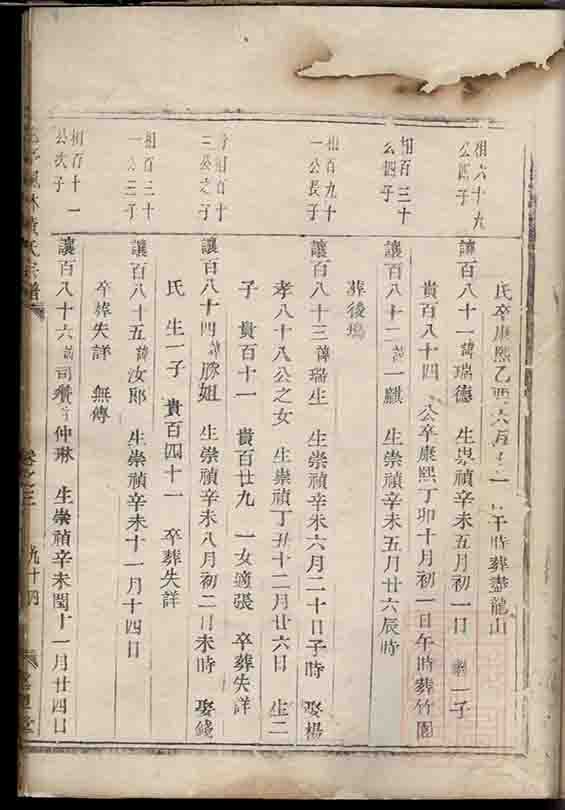 氏卒康熙乙酉六月十一 午時葬盡龍山
相六十九
公四子
讓百八十一諱瑞德 生崇禎辛未五月初一日 一子
貴百八十四 公卒康熙丁卯十月初一日午時葬竹園
相百三十
公四子
讓百八十二諱一麒 生崇禎辛未五月廿六辰時
葬後塢
相百九十
一公長子
讓百八十三諱瑞生 生崇禎辛未六月二十日子時 娶楊
孝八十八公之女 生崇禎丁丑十二月廿六日 生二
子 貴百十一 貴百廿九 一女適張 卒葬失詳
相百十
三公之子
讓百八十四諱勝姐 生崇禎辛未八月初二日未時 娶錢
氏 生一子 貴百四十一 卒葬失詳
相百二十
一公三子
讓百八十五諱汝郎 生崇禎辛未十一月十四日
卒葬失詳 無傳
相百十一
公次子
讓百八十六諱司 仲琳 生崇禎辛未閏十一月廿四日
林黃氏宗譜 卷之三 九十四 堂